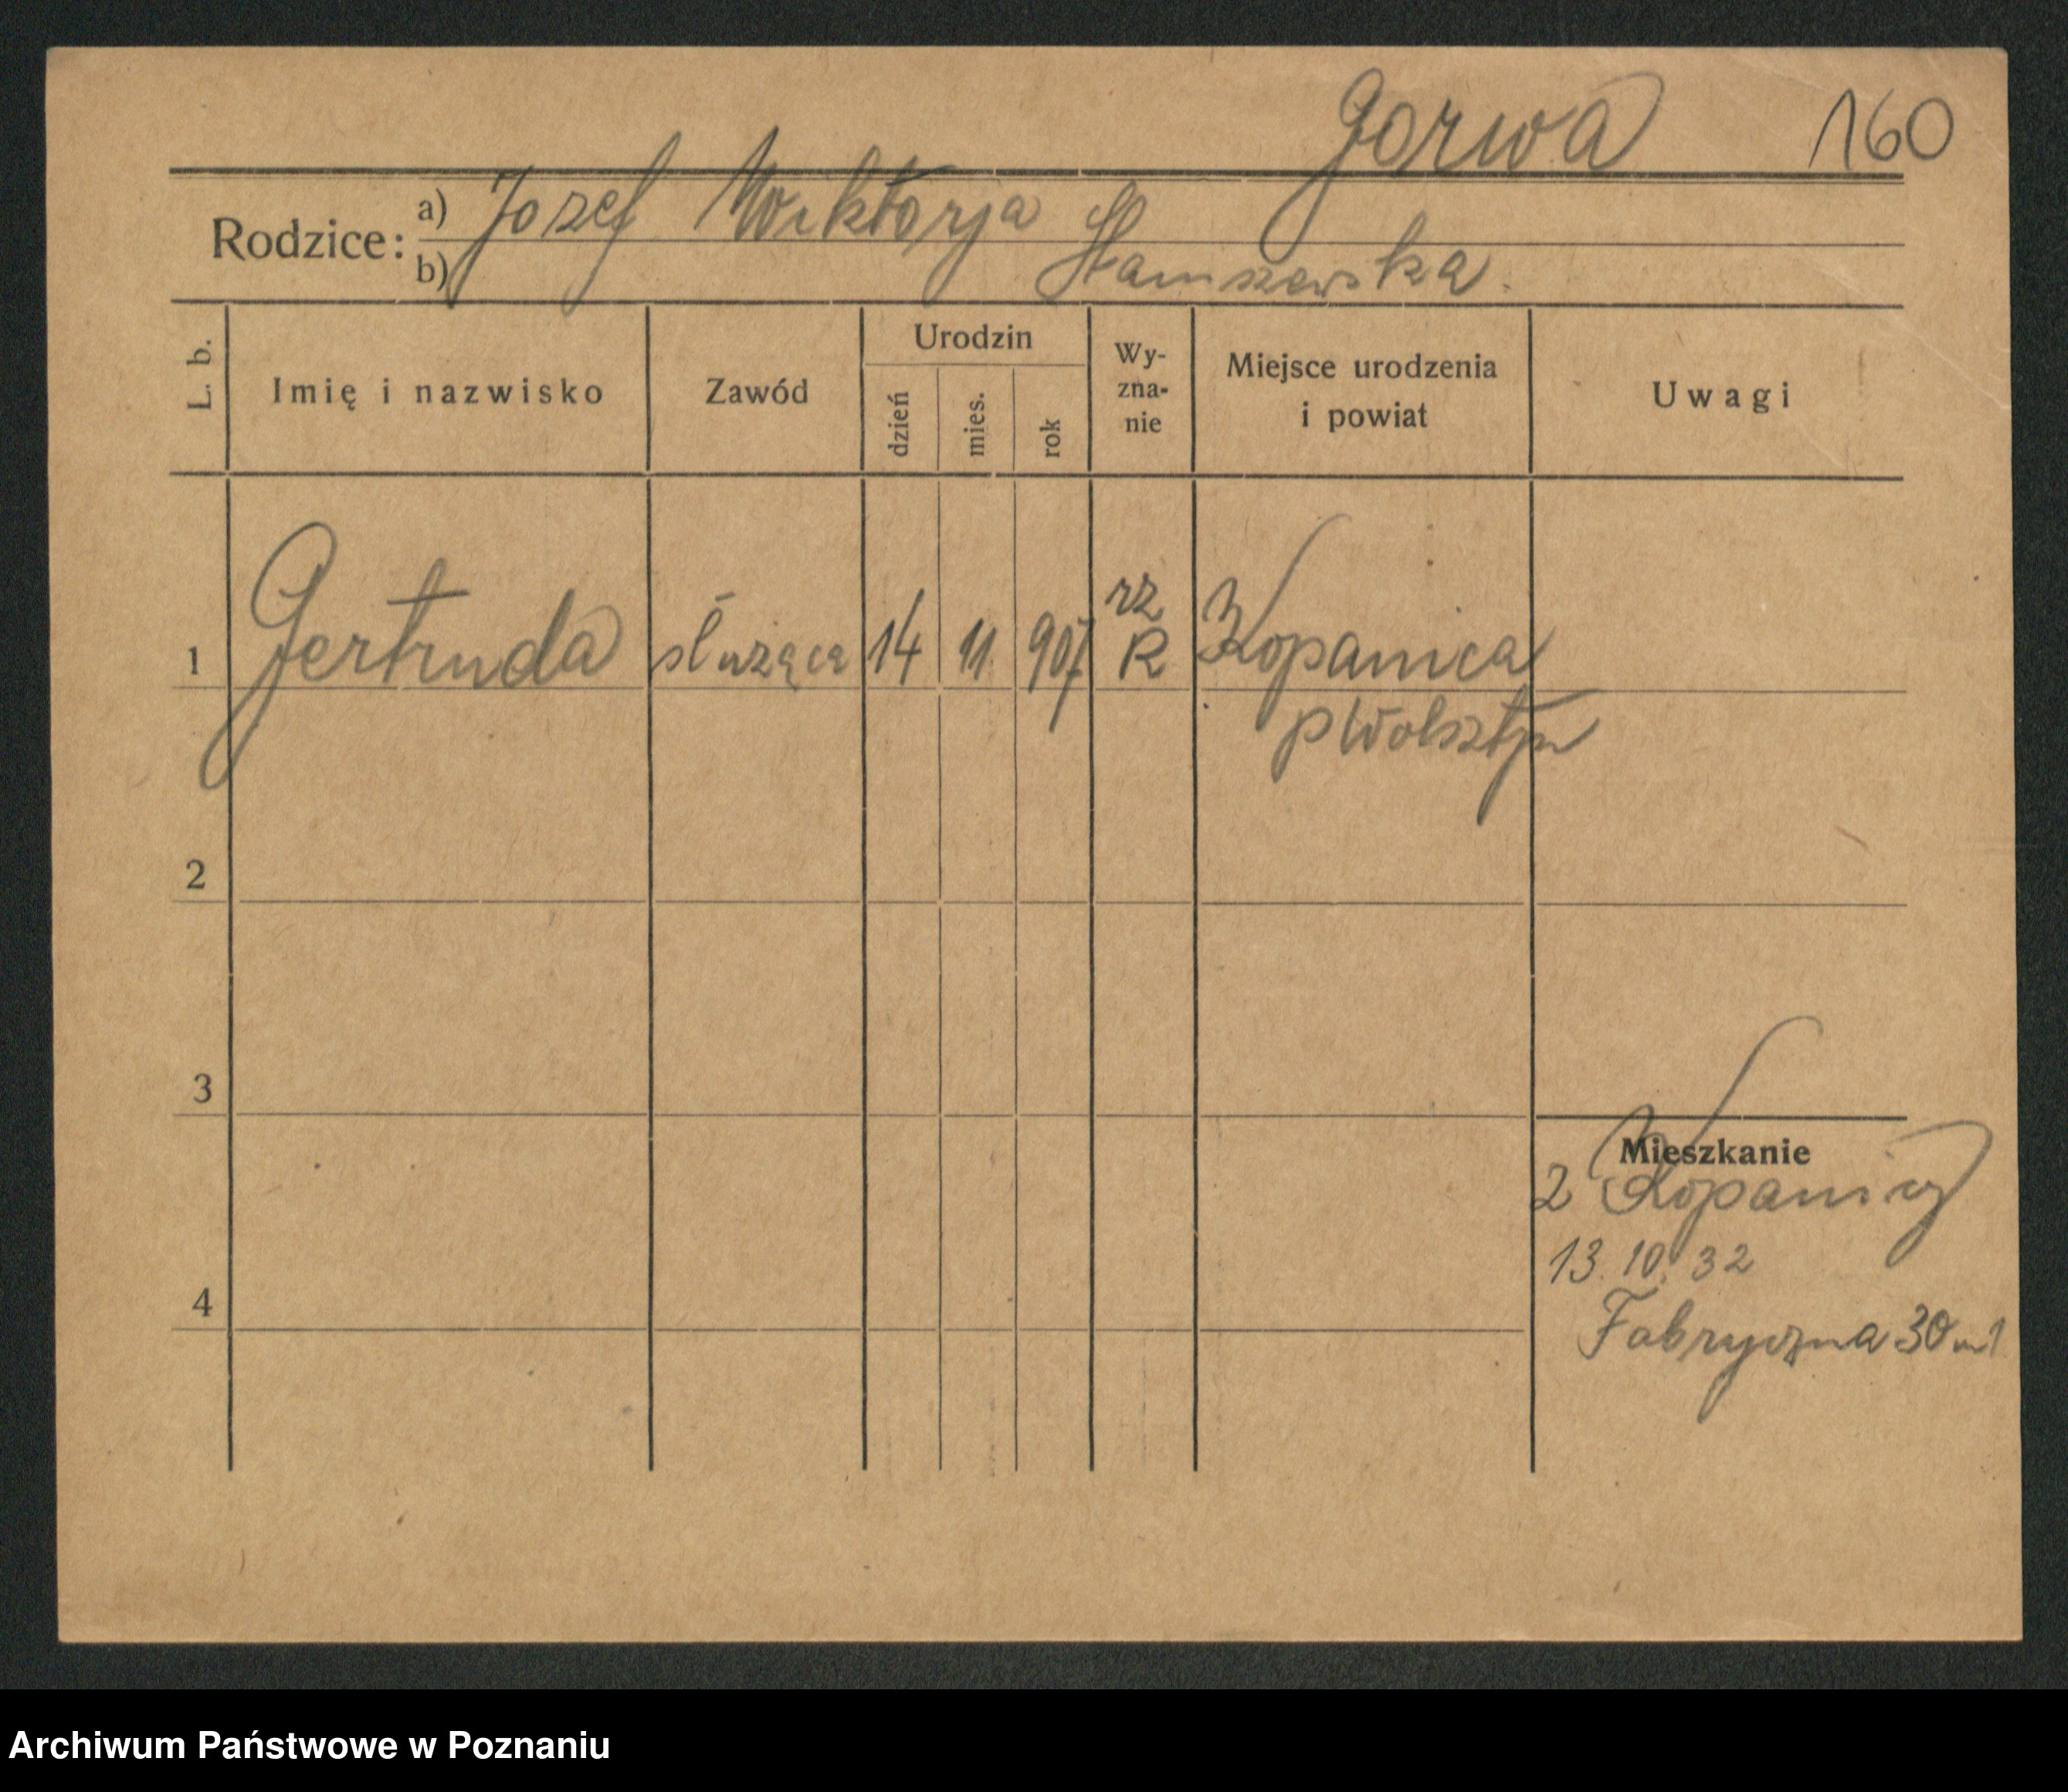 Gorwa 160
Rodzice: a) Jozef Wiktorja
b) Hamszewska.
L. b. Imię i nazwisko Zawód Urodzin dzień mies. rok Wy-zna-nie Miejsce urodzenia i powiat Uwagi
1 Gertruda służąca 14 11 907 rz R Kopanica
p Wolsztyn
2
3
Mieszkanie
z Kopanicy
13. 10. 32
4
Fabryczna 30 m 1
Archiwum Państwowe w Poznaniu